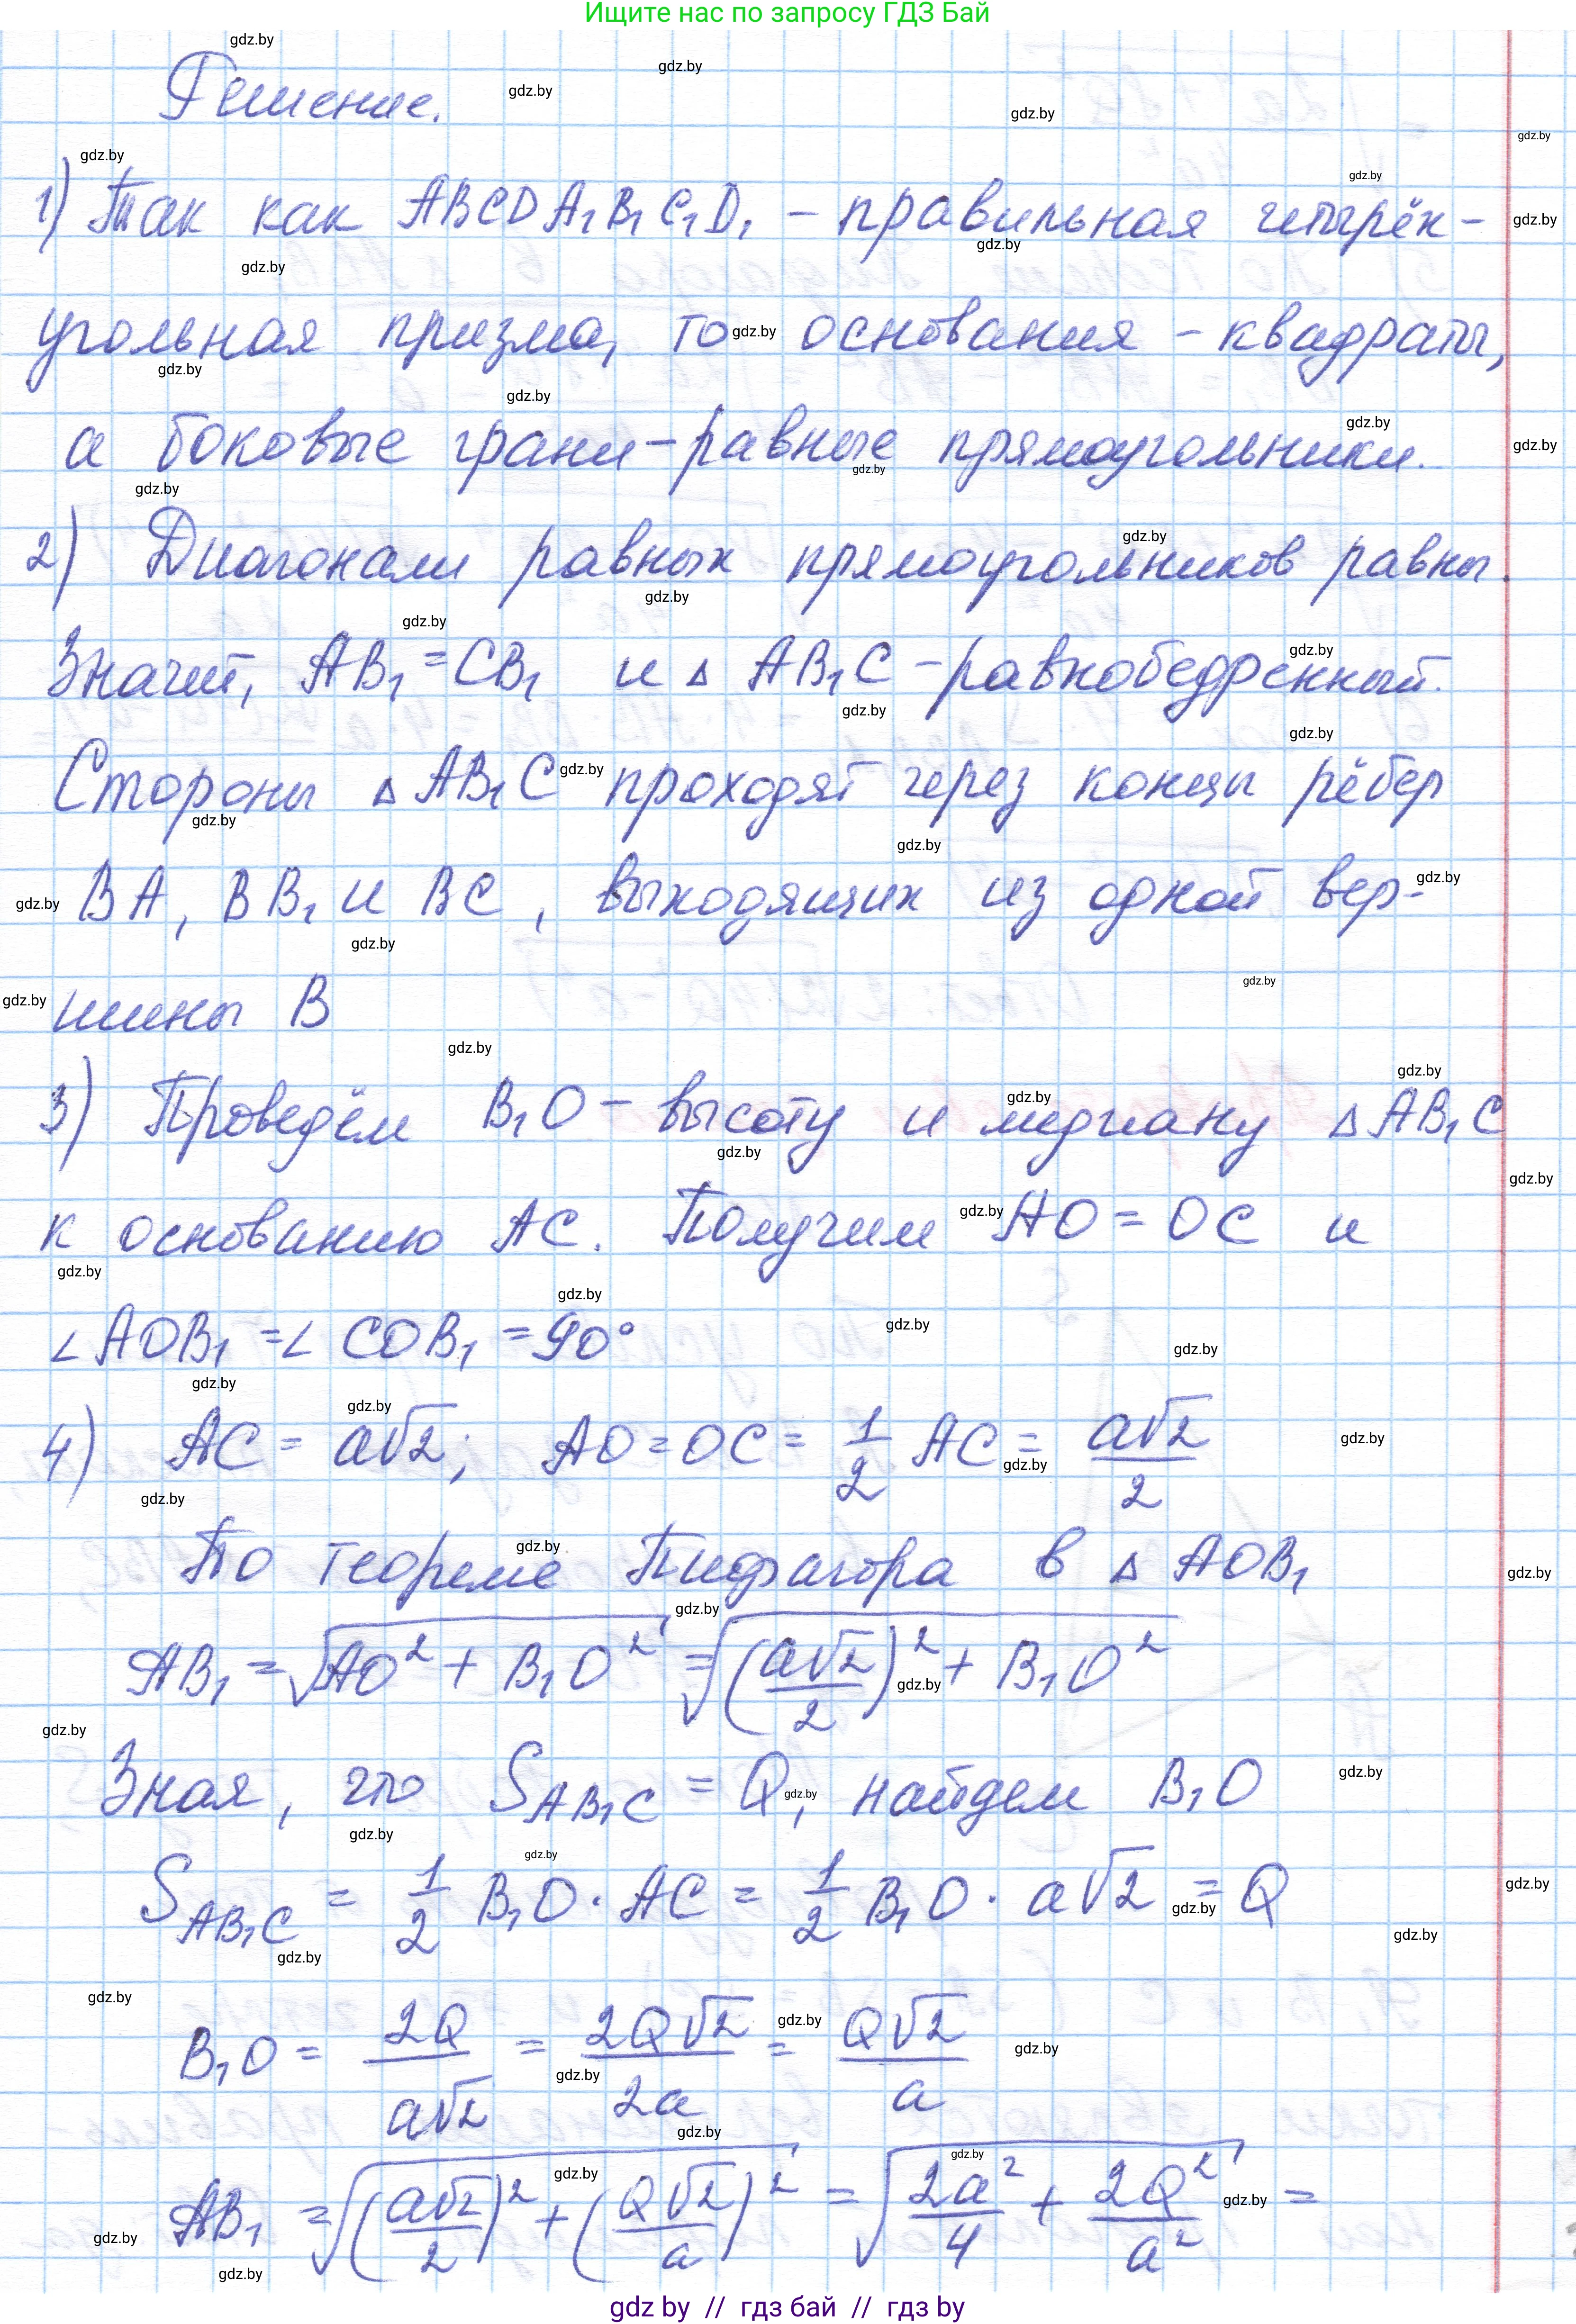 Ищите нас по запросу ГДЗ Бай
Решение.
1) Так как ABCDA₁B₁C₁D₁ - правильная четырёх-
угольная призма, то основания - квадраты,
а боковые грани - равные прямоугольники.
2) Диагонали равных прямоугольников равны.
Значит, AB₁ = CB₁ и Δ AB₁C - равнобедренный.
Стороны Δ AB₁C проходят через концы рёбер
BA, BB₁ и BC, выходящих из одной вер-
шины B
3) Проведём B₁O - высоту и медиану Δ AB₁C
к основанию AC. Получим AO = OC и
∠AOB₁ = ∠COB₁ = 90°
4) AC = a√2; AO = OC = 1/2 AC = a√2/2
По теореме Пифагора в Δ AOB₁
AB₁ = √(AO² + B₁O²) = √((a√2/2)² + B₁O²)
Зная, что S_AB₁C = Q, найдем B₁O
S_AB₁C = 1/2 B₁O · AC = 1/2 B₁O · a√2 = Q
B₁O = 2Q/a√2 = 2Q√2/2a = Q√2/a
AB₁ = √((a√2/2)² + (Q√2/a)²) = √(2a²/4 + 2Q²/a²) =
gdz by // гдз бай // гдз by